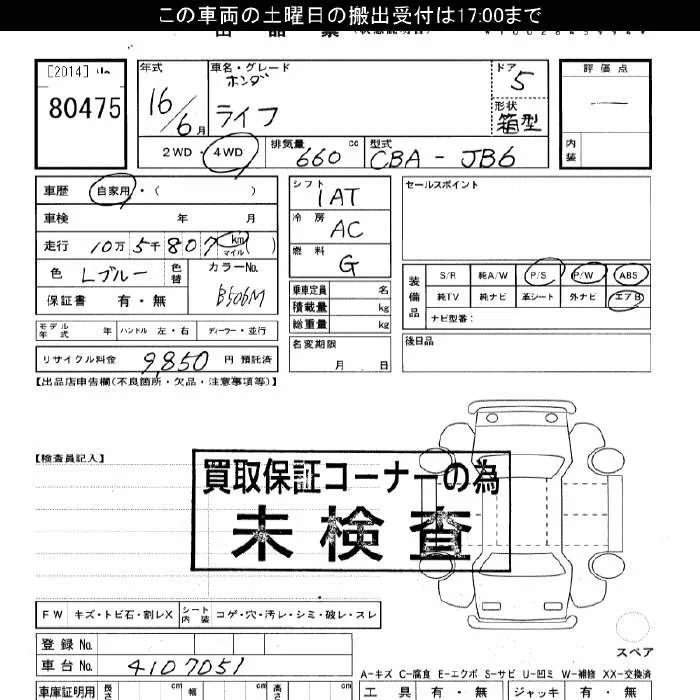 この車両の土曜日の搬出受付は17:00まで
[2014] 80475
年式 16/6月
車名・グレード ホンダ ライフ
ドア 5
形状 箱型
評価点 —
内装
2WD・4WD
排気量 660 cc
型式 CBA - JB6
車歴 自家用・( )
車検 年 月
走行 10万5千807 km マイル ( )
色 Lブルー 色替
カラーNo. B506M
保証書 有・無
シフト 1AT
冷房 AC
燃料 G
乗車定員 名
積載量 kg
総重量 kg
名変期限 月 日
セールスポイント
装備品
S/R 純A/W P/S P/W ABS
純TV 純ナビ 革シート 外ナビ エアB
ナビ型番:
後日品
モデル年式 年 ハンドル 左・右 ディーラー・並行
リサイクル料金 9,850 円 預託済
【出品店申告欄(不良箇所・欠品・注意事項等)】
【検査員記入】
買取保証コーナーの為
未検査
FW キズ・トビ石・割レX シート内装 コゲ・穴・汚レ・シミ・破レ・スレ
登録No.
車台No. 4107051
スペア
A-キズ C-腐食 E-エクボ S-サビ U-凹ミ W-補修 XX-交換済
車庫証明用 長さ cm 幅 cm 高さ cm
工具 有・無 ジャッキ 有・無